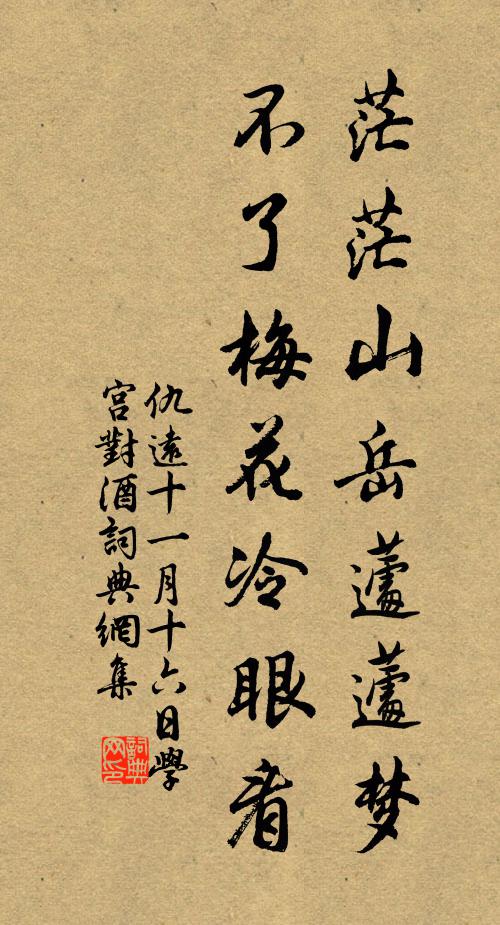 茫茫山岳蘧蘧梦
不了梅花冷眼看
仇遠十一月十六日學
宮對酒詞典網集
詞典
网印